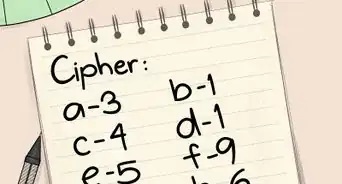 Cipher:
a-3 b-1
c-4 d-1
e-5 f-9
h-6